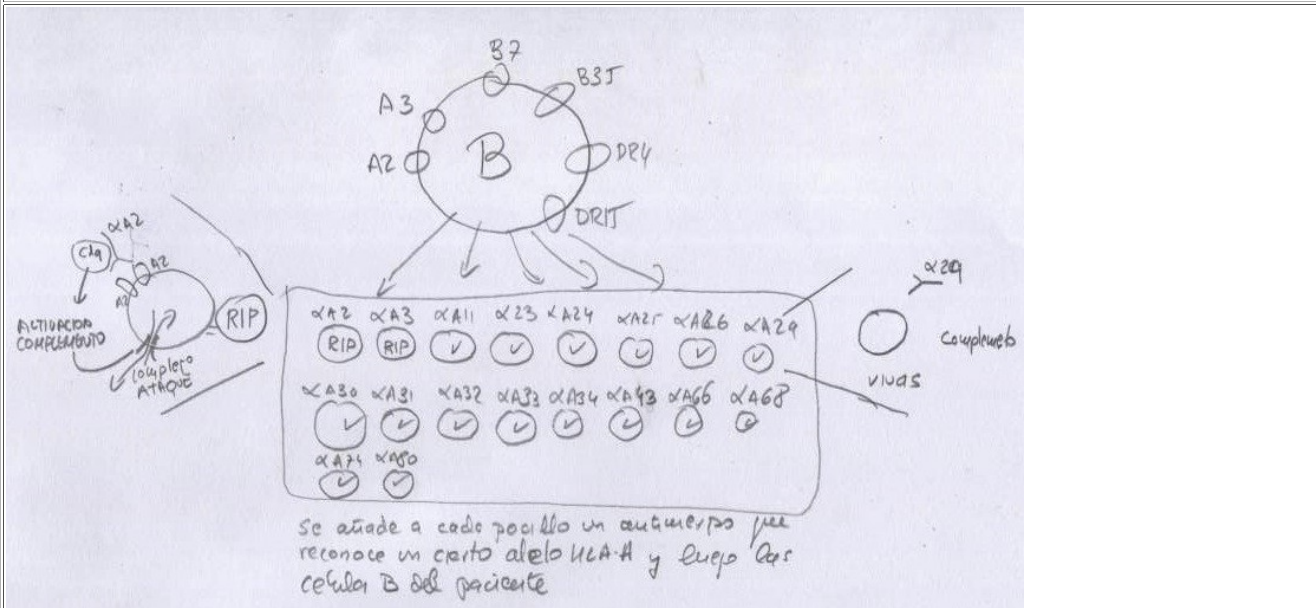 B7
B35
A3
A2
B
DR4
DR15
αA2
C1q
A2
A2
ACTIVACION
COMPLEMENTO
complejo
ATAQUE
RIP
αA2 αA3 αA11 α23 αA24 αA25 αA26 αA29
RIP RIP
αA30 αA31 αA32 αA33 αA34 αA43 αA66 αA68
αA74 αA80
α29
Complemento
vivas
Se añade a cada pocillo un anticuerpo que
reconoce un cierto alelo HLA-A y luego las
celula B del paciente